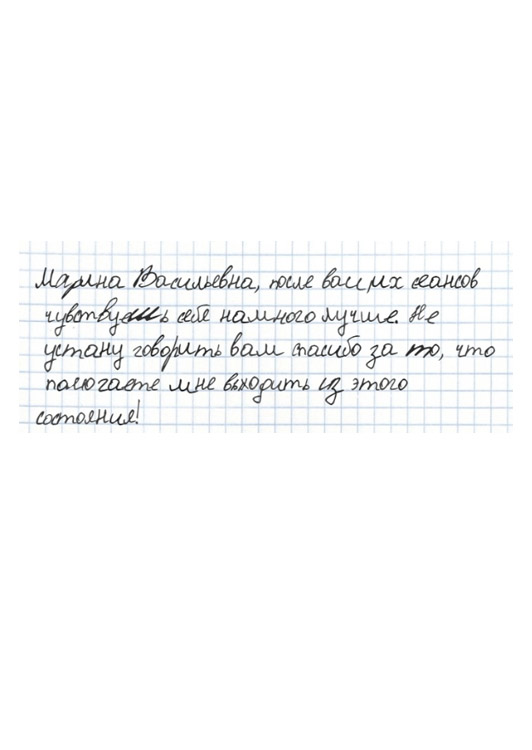 Марина Васильевна, после ваших сеансов
чувствуешь себя намного лучше. Не
устану говорить вам спасибо за то, что
помогаете мне выходить из этого
состояния!